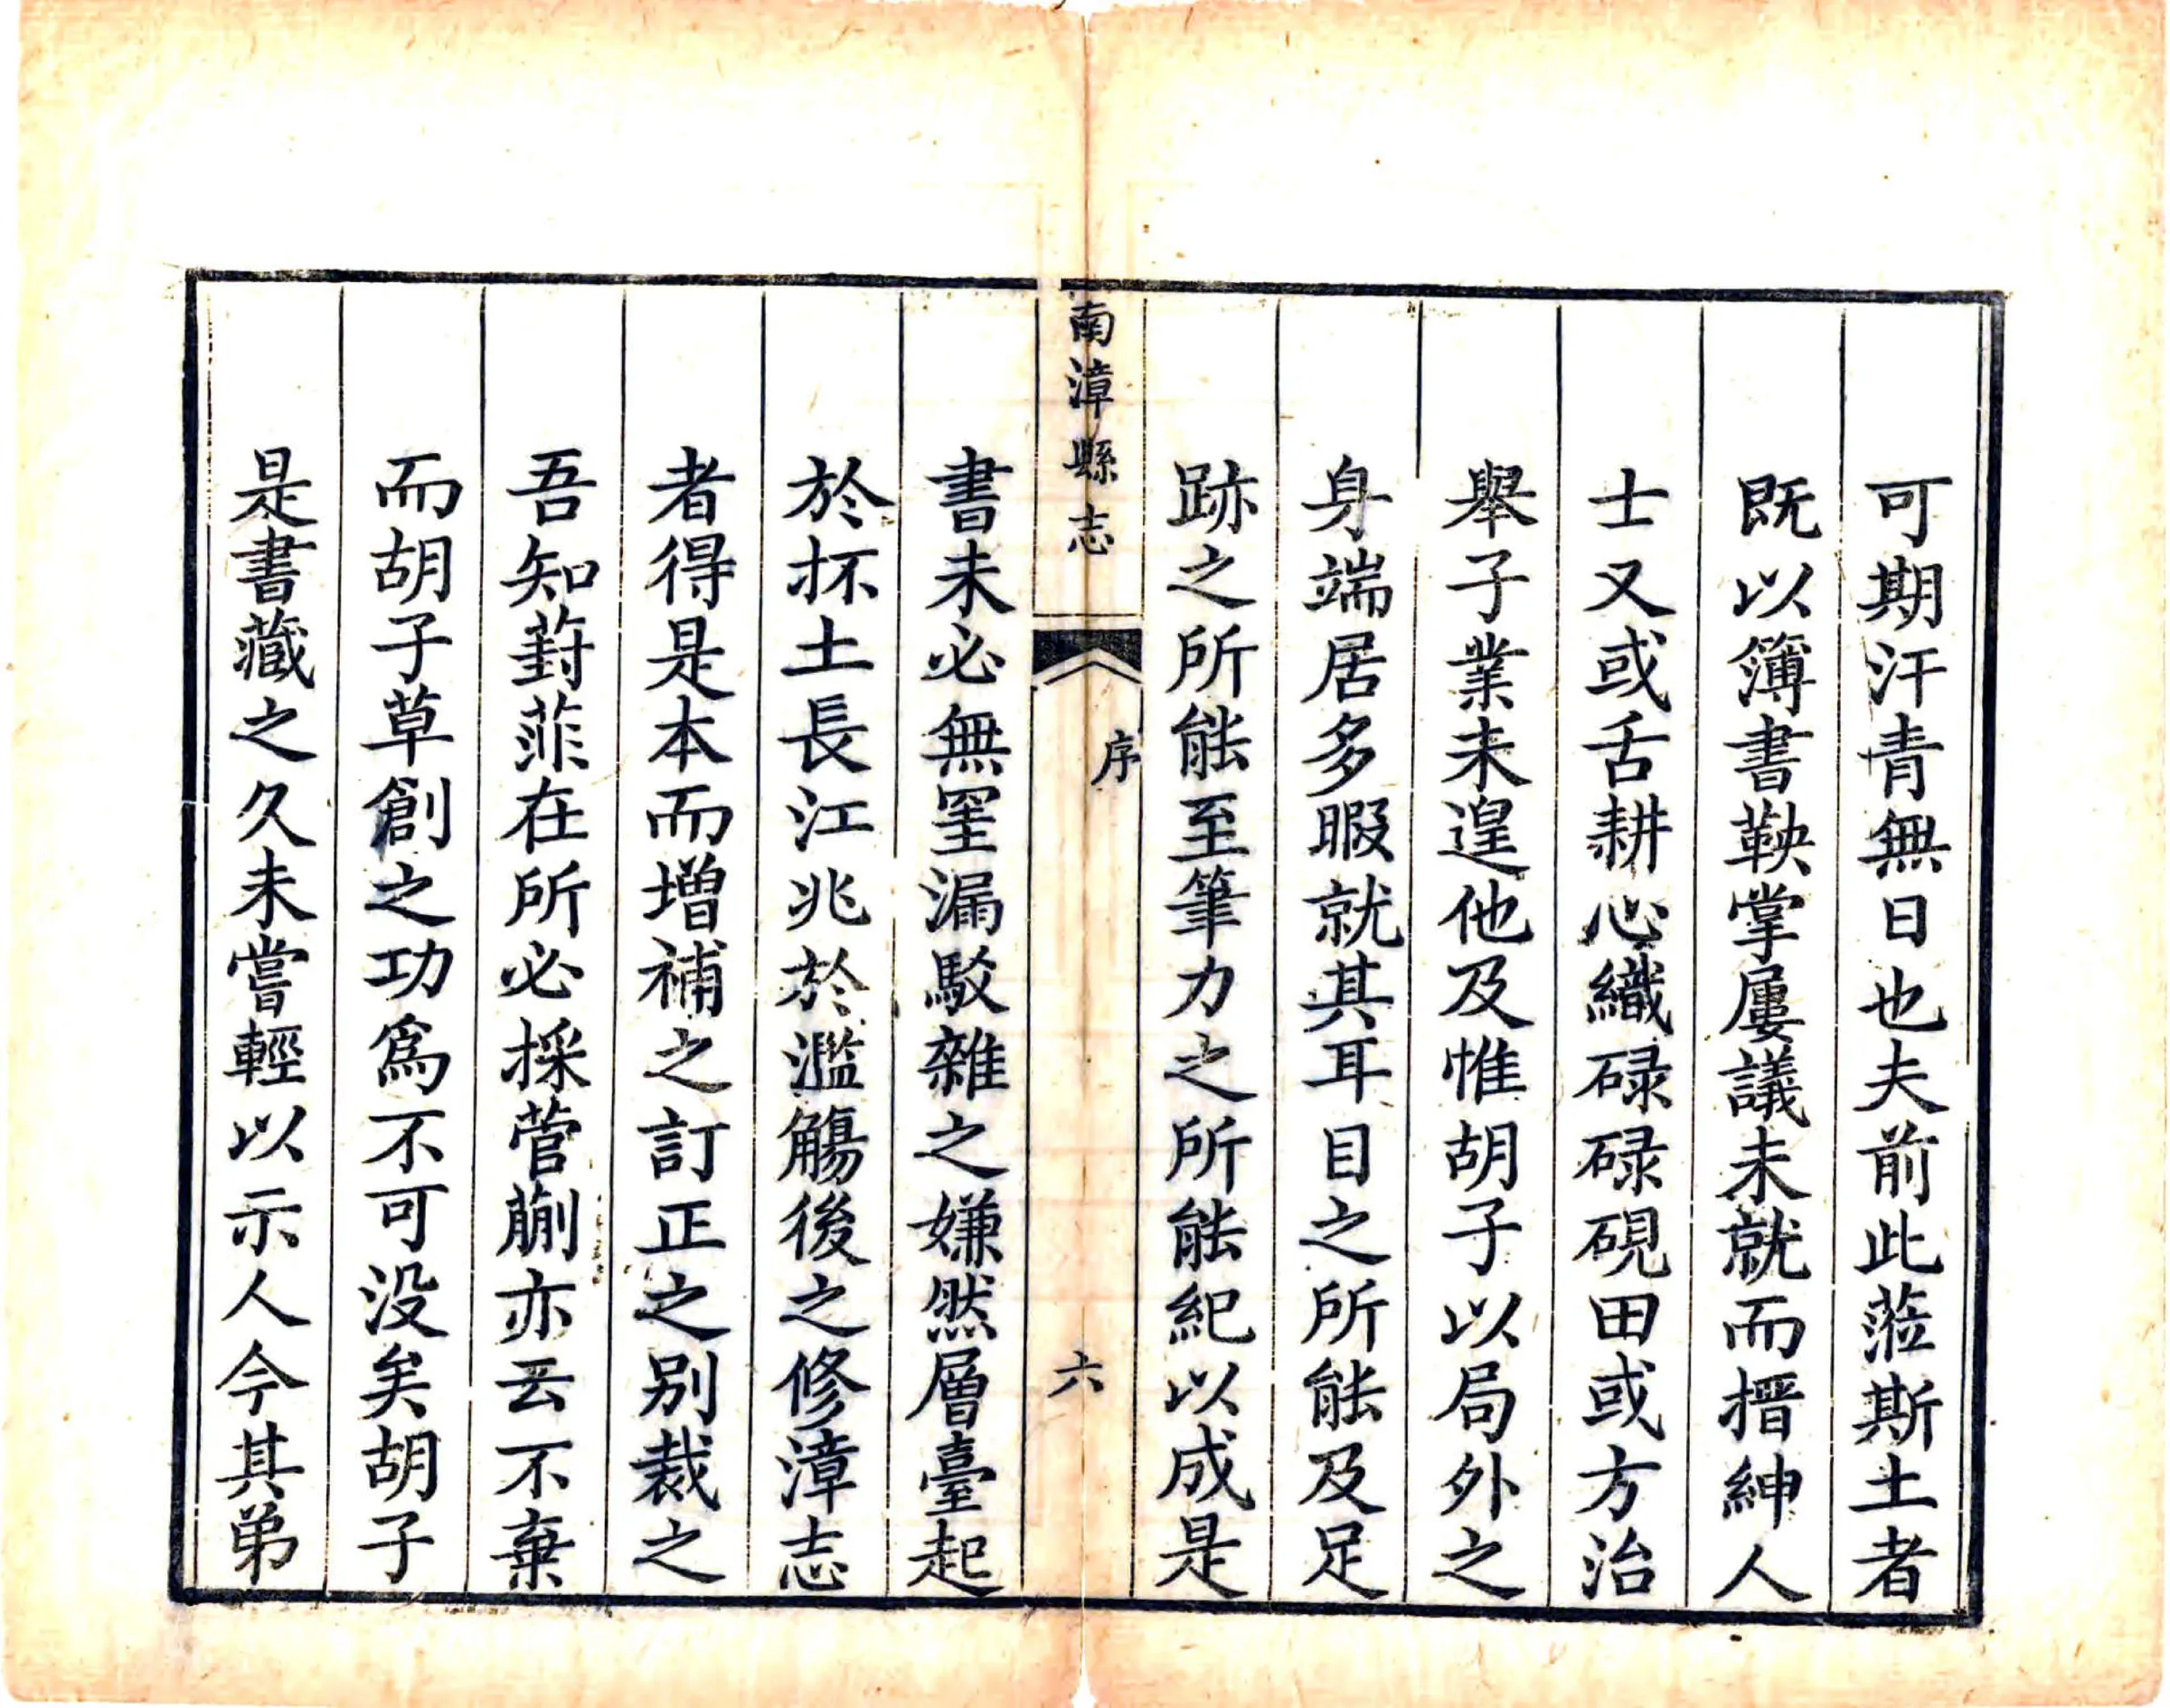 可期汗青無日也夫前此蒞斯土者
既以簿書鞅掌屢議未就而搢紳人
士又或舌耕心織碌碌硯田或方治
舉子業未遑他及惟胡子以局外之
身端居多暇就其耳目之所能及足
跡之所能至筆力之所能紀以成是
南漳縣志
序
六
書未必無罣漏駁雜之嫌然層臺起
於抔土長江兆於濫觴後之修漳志
者得是本而增補之訂正之別裁之
吾知葑菲在所必採菅蒯亦云不棄
而胡子草創之功為不可没矣胡子
是書藏之久未嘗輕以示人今其弟